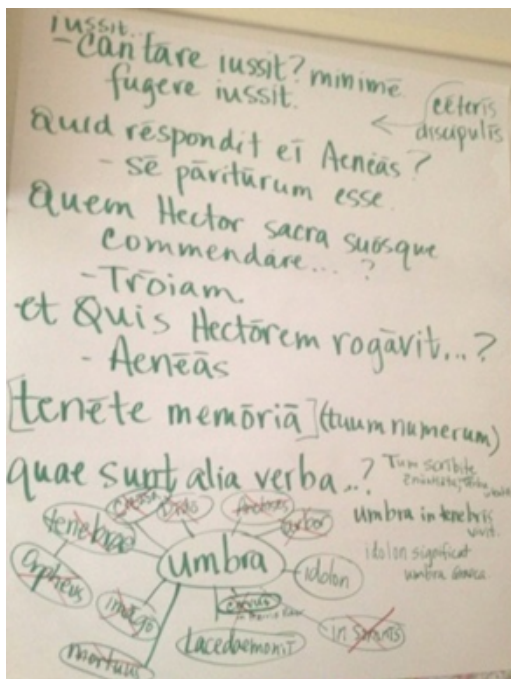 iussit.
- Cantare iussit? minimē
fugere iussit.
cēterīs
discipulīs
Quid rēspondit eī Aenēās?
- sē pāritūrum esse.
Quem Hector sacra suōsque
commendāre...?
- Trōiam.
et Quis Hectōrem rogāvit...?
- Aenēās
[tenēte memōriā] (tuum numerum)
quae sunt alia verba...?
Tum scribite
umbra in tenebris
vivit.
idolon significat
umbra
tenebrae
Dido
arbor
umbra
idolon
Orpheus
imāgō
cervus
in
Lacedaemoniī
mortuus